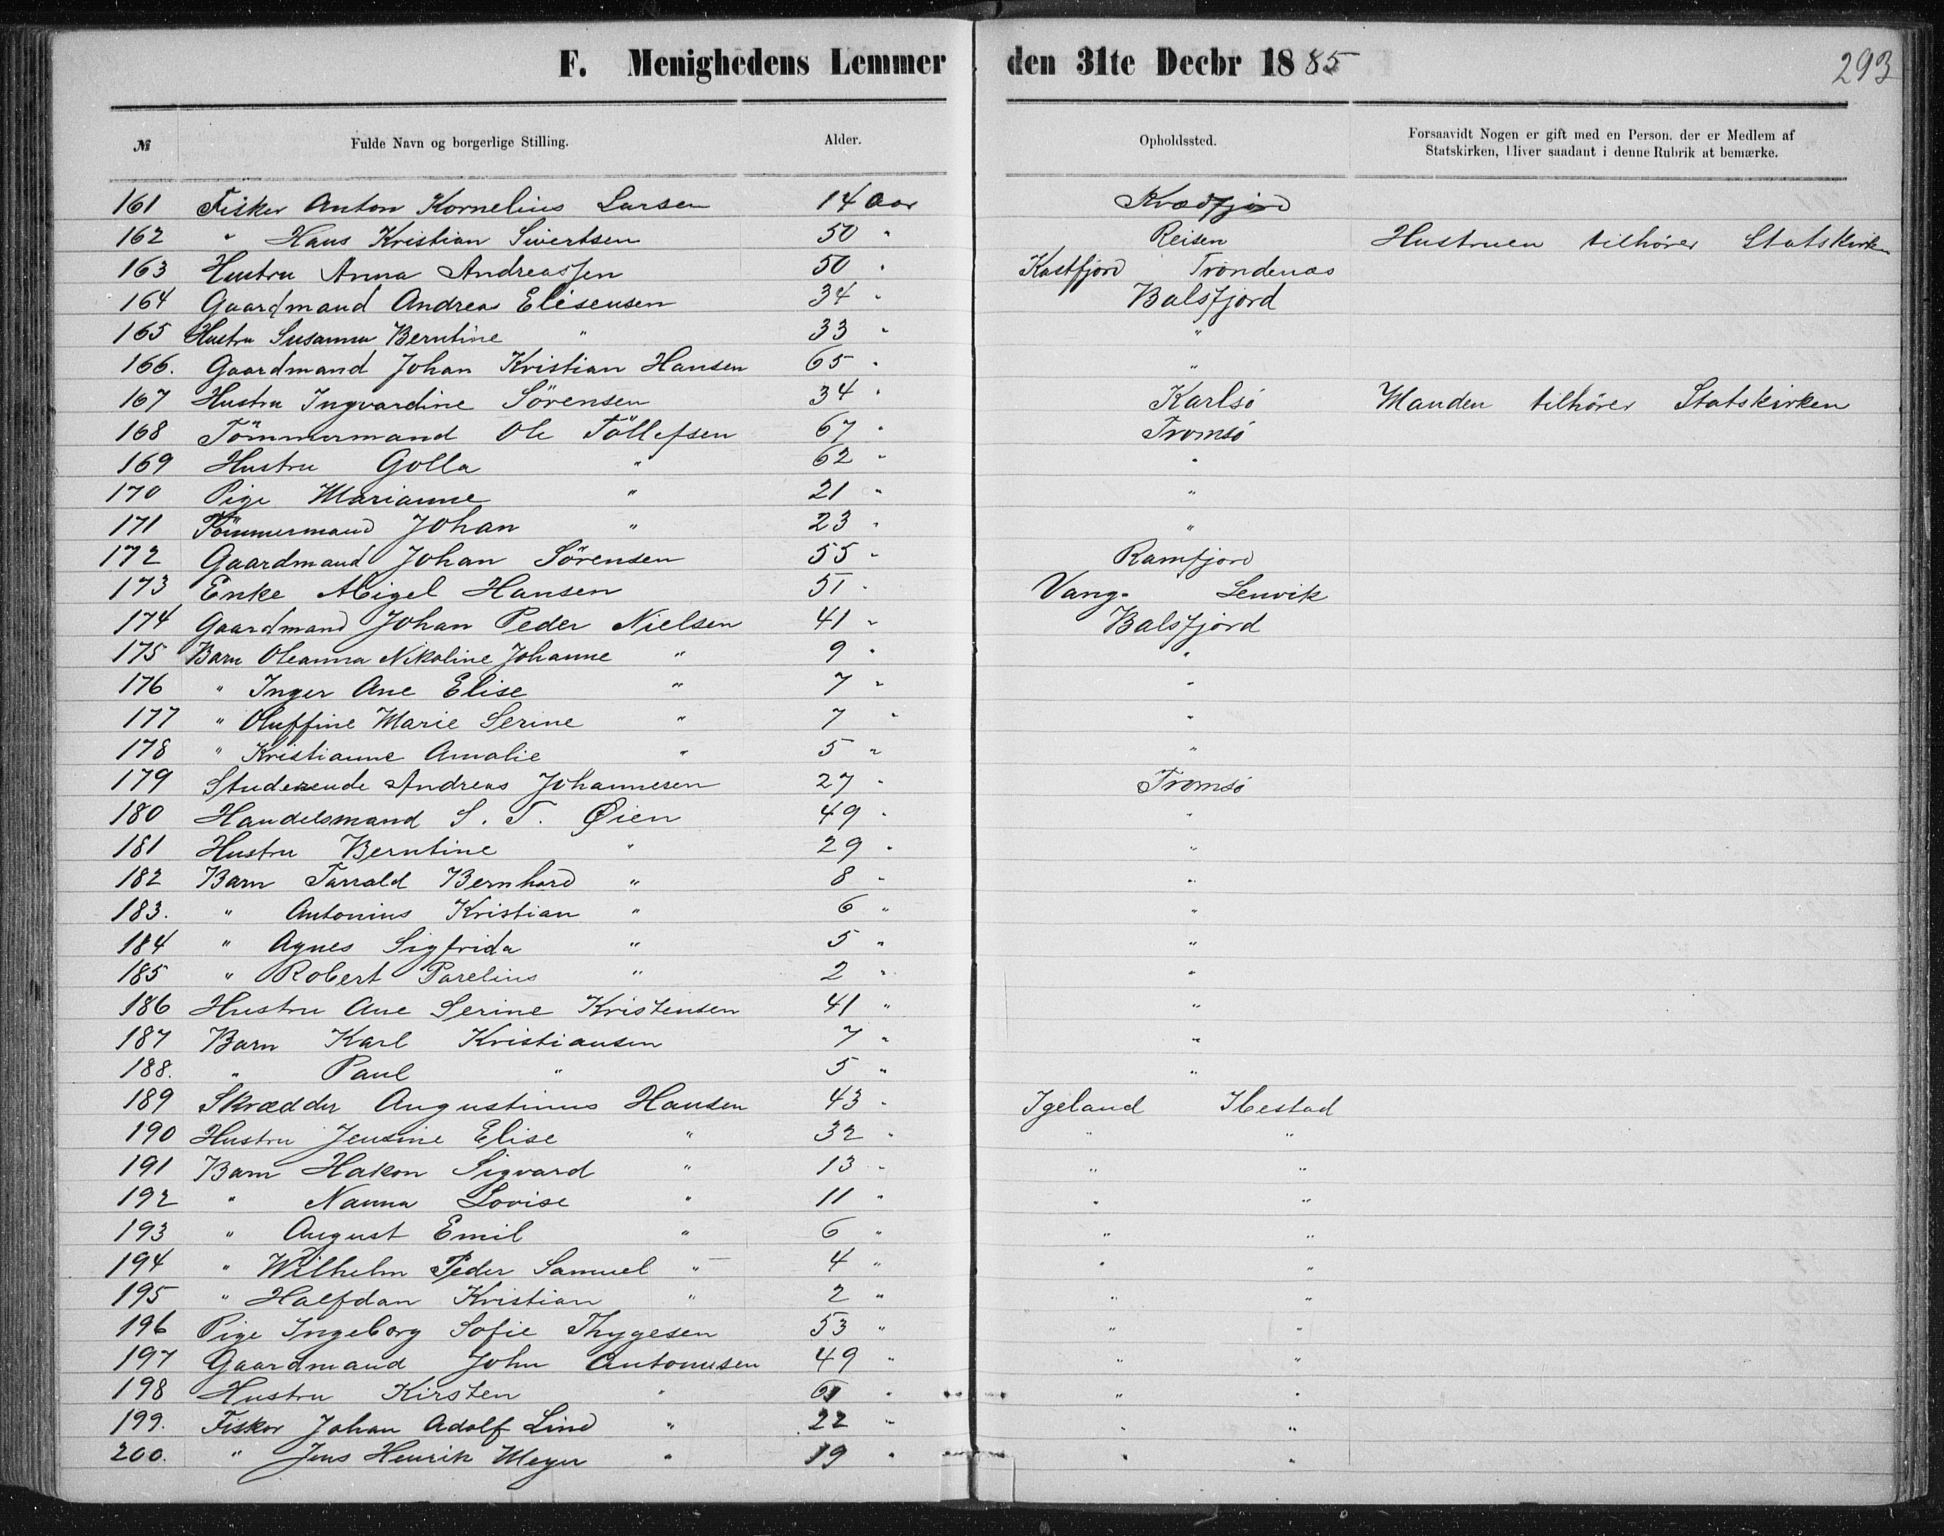 F. Menighedens Lemmer den 31te Decbr 1885
293
№ Fulde Navn og borgerlige Stilling. Alder. Opholdssted. Forsaavidt Nogen er gift med en Person, der er Medlem af
Statskirken, bliver saadant i denne Rubrik at bemærke.
161 Fisker Anton Kornelius Larsen 14 Aar Kvædfjord
162 " Hans Kristian Sivertsen 50 " Reisen Hustruen tilhører Statskirken
163 Hustru Anna Andreassen 50 " Kastfjord Trondenæs
164 Gaardmand Andrea Elisensen 34 " Balsfjord
165 Hustru Susanna Berntine " 33 " "
166. Gaardmand Johan Kristian Hansen 65 " "
167 Hustru Ingvardine Sörensen 34 " Karlsø Manden tilhører Statskirken
168 Tömmermand Ole Töllefsen 67 " Tromsø
169 Hustru Golla " 62 " "
170 Pige Marianne " 21 " "
171 Tömmermand Johan " 23 " "
172 Gaardmand Johan Sörensen 55 " Ramfjord
173 Enke Migel Hansen 51 " Vang. Lenvik
174 Gaardmand Johan Peder Nielsen 41 " Balsfjord
175 Barn Oleanna Nikoline Johanne " 9 " "
176 " Inger Ane Elise " 7 " "
177 " Oluffine Marie Serine " 7 " "
178 " Kristianne Amalie " 5 " "
179 Studerende Andreas Johannesen 27 " Tromsø
180 Handelsmand S. T. Øien 49 " "
181 Hustru Berntine " 29 " "
182 Barn Tarald Bernhard " 8 " "
183. " Antonius Kristian " 6 " "
184 " Agnes Sigfrida " 5 " "
185 " Robert Parelius " 2 " "
186 Hustru Ane Serine Kristensen 41 " "
187 Barn Karl Kristiansen 7 " "
188. " Paul " 5 " "
189 Skrædder Augustinus Hansen 43 " Igeland Ibestad
190 Hustru Jensine Elise " 32 " " "
191 Barn Hakon Sigvard " 13 " " "
192 " Nanna Lovise " 11 " " "
193 " August Emil " 6 " " "
194 " Wilhelm Peder Samuel " 4 " " "
195 " Halfdan Kristian " 2 " " "
196 Pige Ingeborg Sofie Thygesen 53 " " "
197 Gaardmand John Antonusen 49 " " "
198 Hustru Kirsten " " " "
199. Fisker Johan Adolf Lind " 22 " " "
200. " Jens Henrik Meyer " 19 " " "